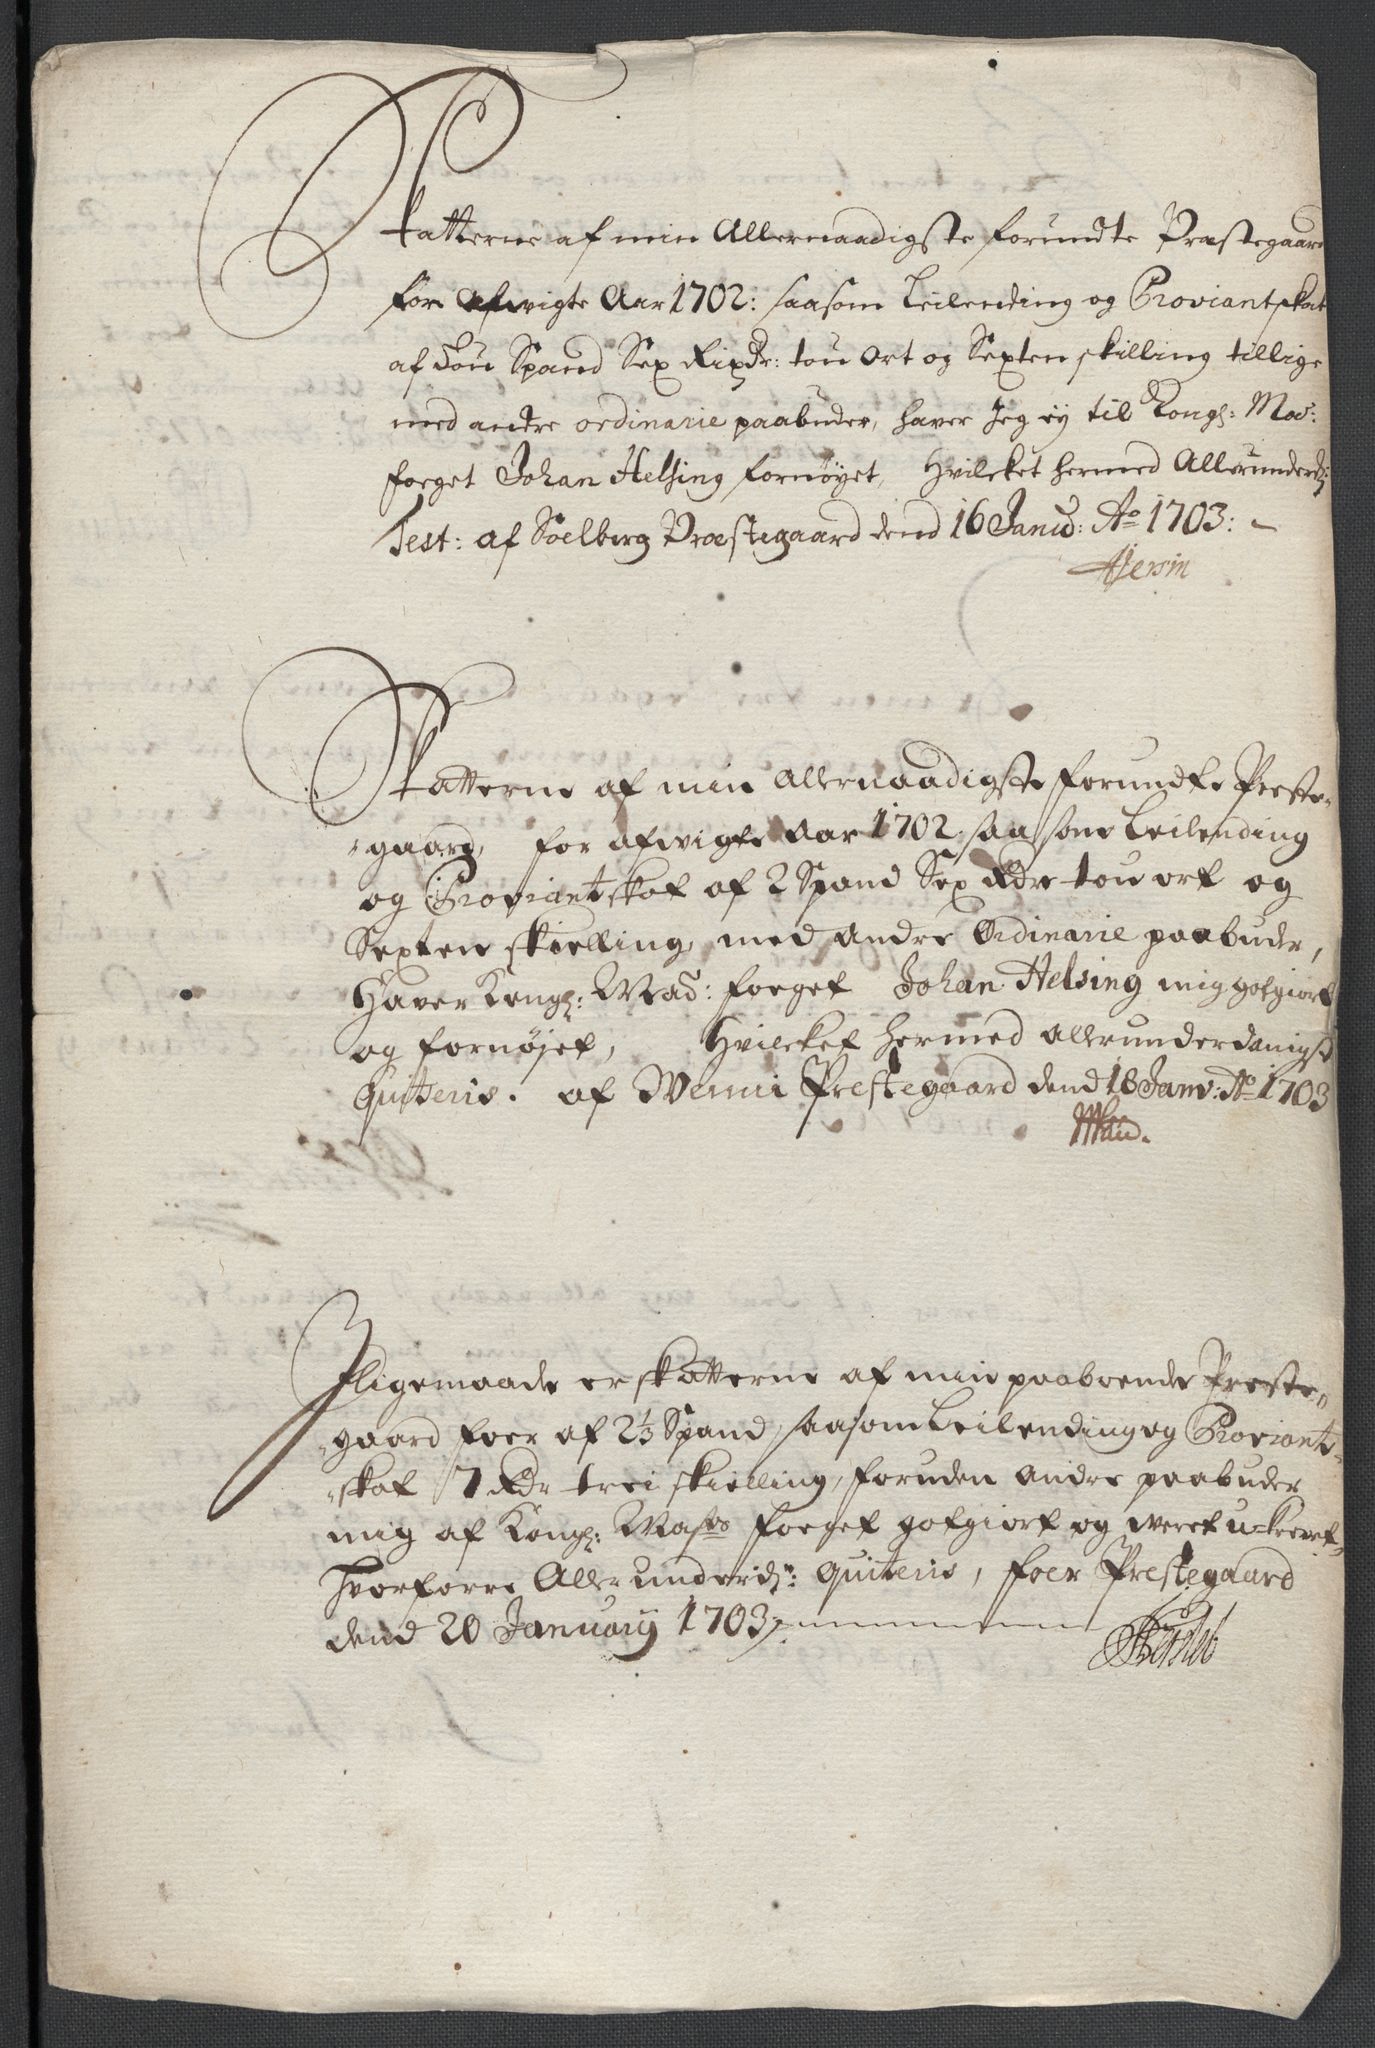 Skatterne af min Allernaadigste forundte Præstegaard
for afwigte Aar 1702: saasom Leilending og Proviantskat
af tou Spand Sex Rixdr: tou Ort og Sexten skilling tillige
med andre ordinarie paabuder, haver Jeg ej til Kongl: May:
foeget Johan Helsing fornøyet, Hvilcket hermed Allerunderd:
Test: af Soelberg Præstegaard dend 16 Janu: Ao 1703:
Skatterne af min allernaadigste forundte Preste-
gaard, for afwigte Aar 1702 saasom Leilending
og Proviantskat af 2 Spand Sex Rdr tou ort og
Sexten skielling, med andre Ordinarie paabuder,
Haver Kongl: May: foeget Johan Helsing mig gotgiort
og fornøjet, Hvilcket hermed allerunderdanigst
Quitteris. af Prestegaard dend 18 Janv: Ao 1703
Jligemaade er skatterne af min paaboende Preste-
gaard foer af 2 1/3 Spand, saasom Leilending og Proviant-
skat 7 Rdr trei skielling, foruden andre paabuder
mig af Kongl: Mayts foeget gotgiort og weret u-krevet,
Hvorforre Allerunderd: quiteris, foer Prestegaard
dend 20 January 1703